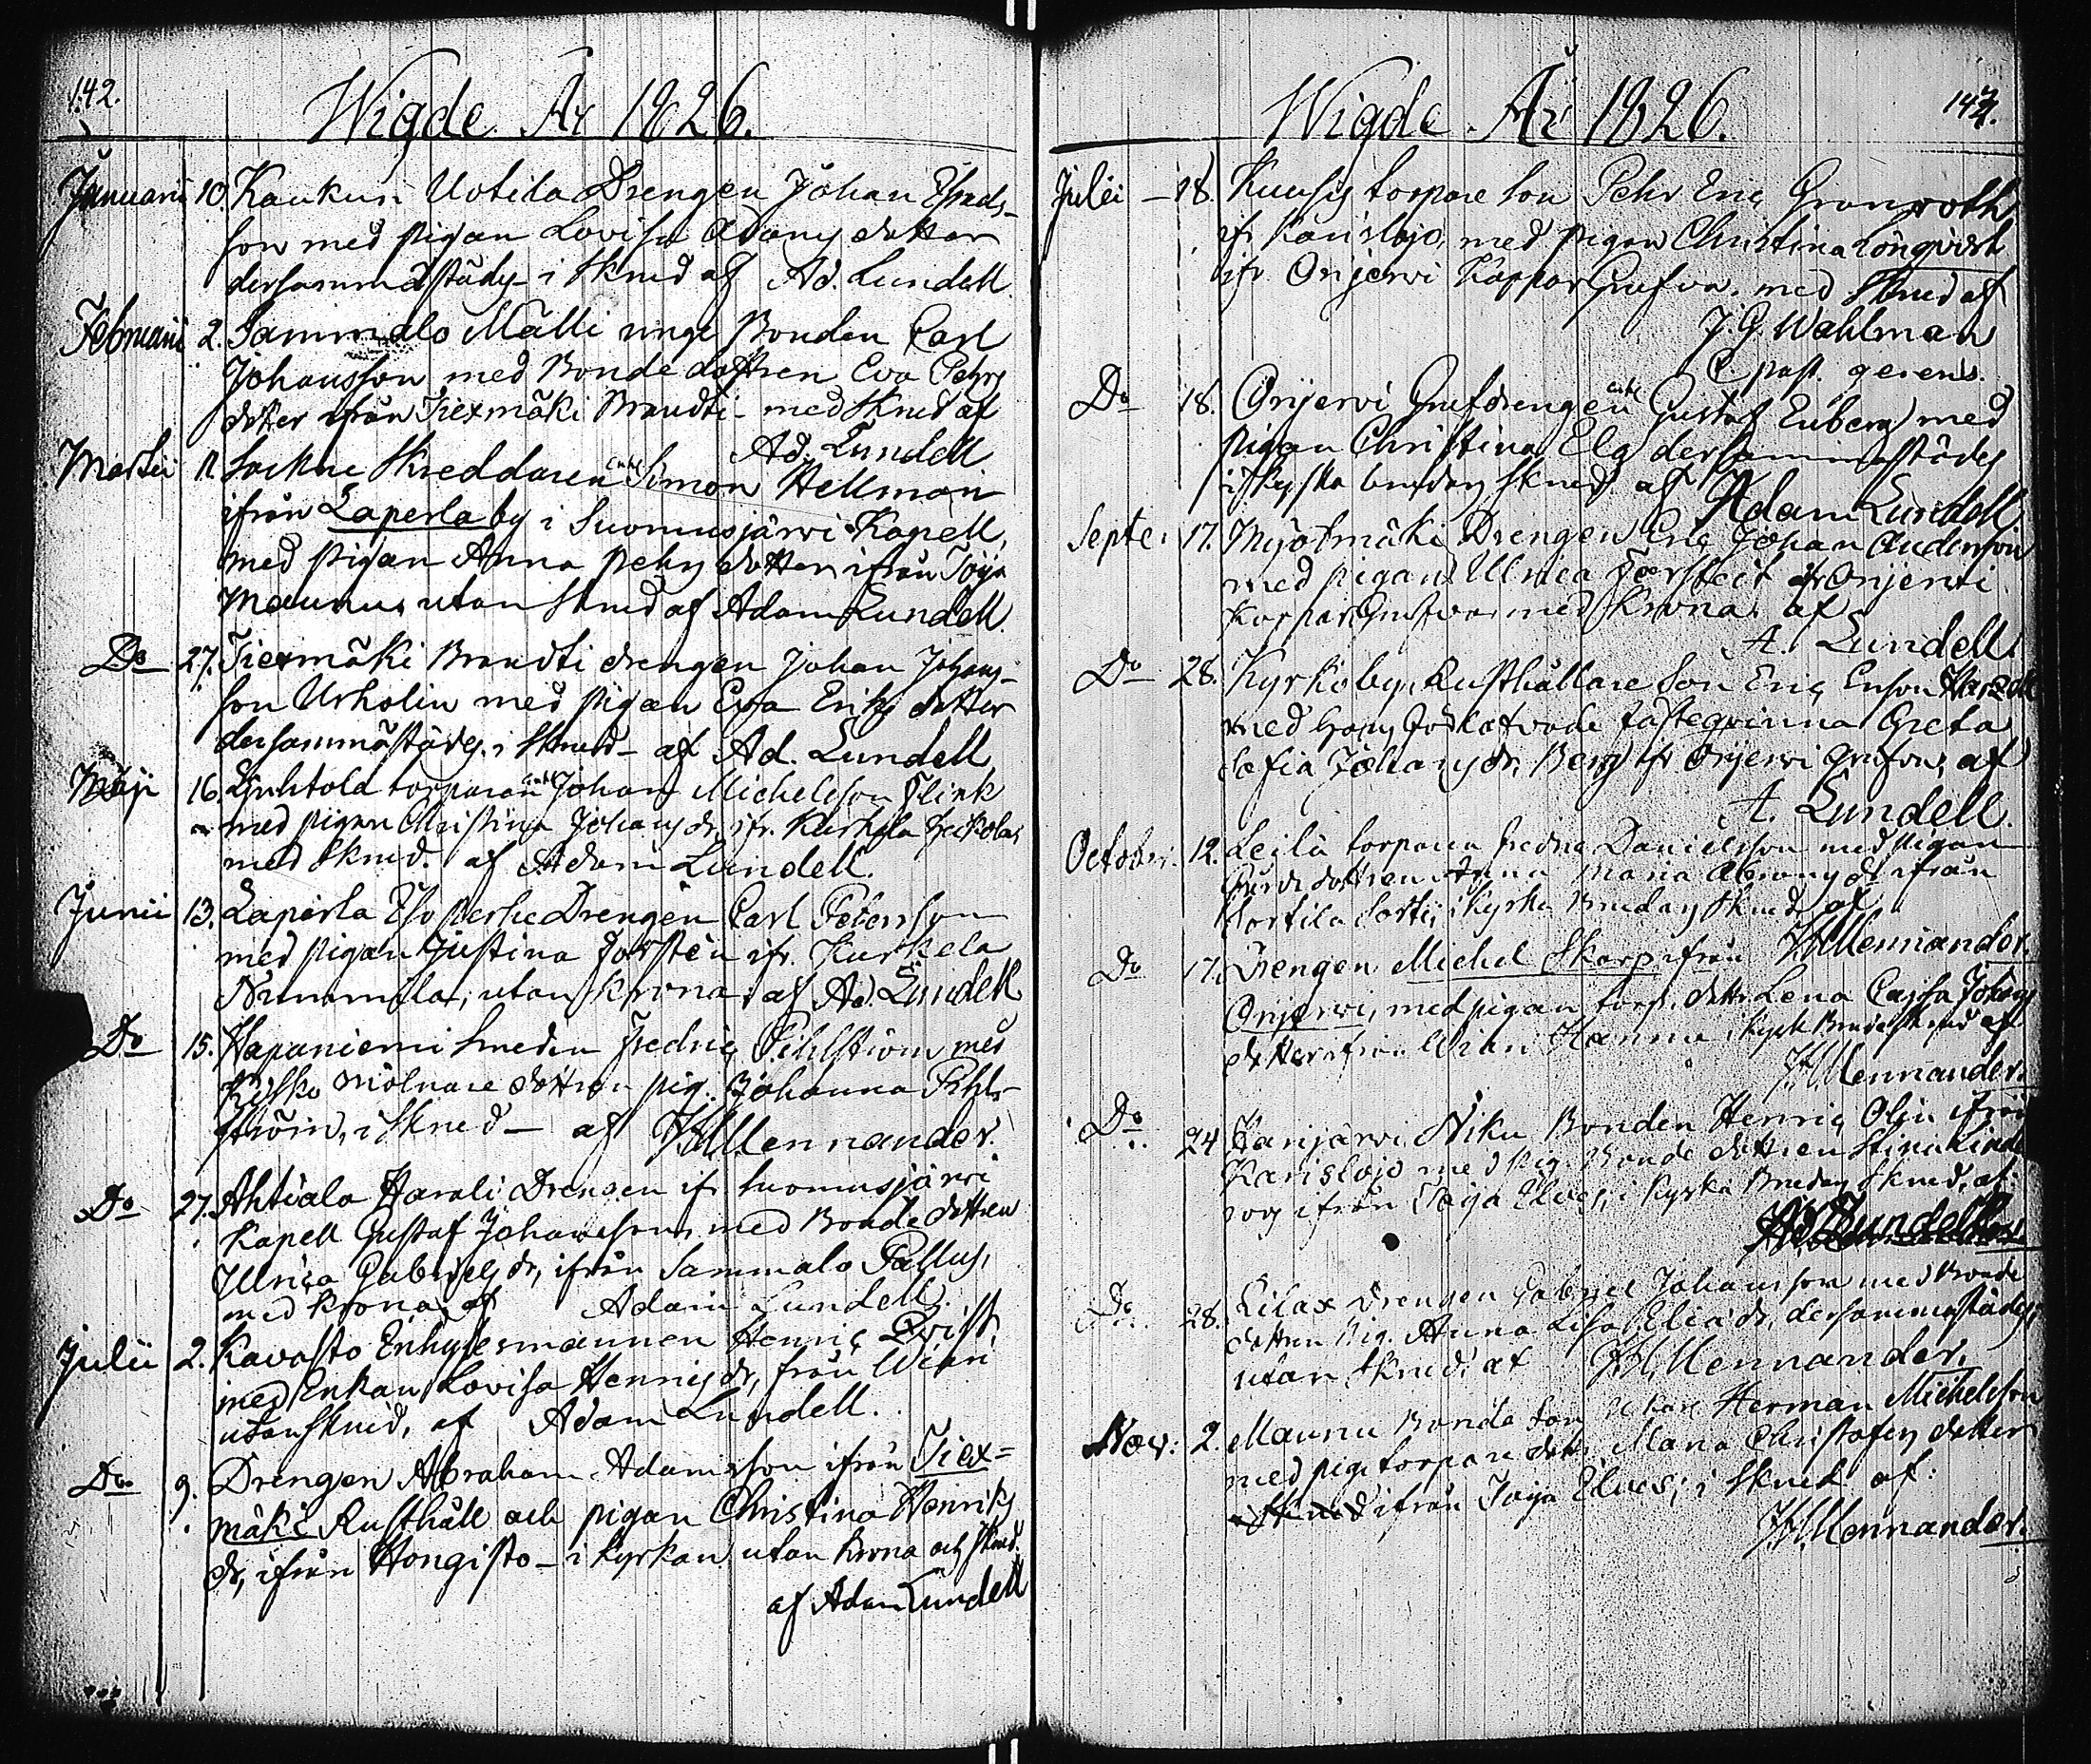 142.
Wigde År 1826.
Januarii 10. Kaukuri Uotila Drengen Johan
son med pigan Lovisa Adams dotter
dersammastädes i skrud af Ad. Lundell
Februarii 2. Sammalo Mälli unge Bonden Carl
Johansson med Bonde dottren Eva Pehrs
dotter ifrån Tiexmäki Brandti med skrud af
Ad. Lundell
Martii Sockne Skreddaren enkl Simon Hellman
ifrån Laperla by i Suomusjärvi Kapell,
med pigan Anna Pehrs dotter ifrån Töija
Maunu utan skrud af Adam Lundell.
Do 27. Tiexmäki Brandti drengen Johan Johans-
son Urholin med pigan Eva Eriks dotter
dersammastädes i skrud af Ad. Lundell
Maji 16. torparen enkl Johan Michelsson Flink
med pigan Christina Johans dr, ifr. Kurkela
med skrud. af Adam Lundell.
Junii 13. Laperla Drengen Carl Petersson
med pigan Justina Forstén ifr. Kurkela
utan krona, af Ad. Lundell
Do 15. Hapaniemi smeden Fredric Pihlström med
Kisko mölnare dottren pig. Johanna Pihl-
ström, i skrud af Mennander.
Do 27. Ahtiala Harali Drengen ifr Suomusjärvi
Kapell Gustaf Johansson, med Bonde dottren
Ulrica Gabriels dr, ifrån Sammalo Pallus,
med krona, af Adam Lundell.
Julii 2. Kavasto Enhysesmannen Henric Qvist,
med Enkan Lovisa Henrics dr, från Wiari
utan skrud, af Adam Lundell.
Do 9. Drengen Abraham Adamsson ifrån Tiex=
mäki Rusthåll och pigan Christina Henriks
dr, ifrån Hongisto i kyrkan utan krona och skrud.
af Adam Lundell
Wigde År 1826.
Julii 18. torpare son Pehr Eric Grönroth
ifr Karislojo, med pigan Christina Lönqvist
ifr Orijervi Koppar Grufva, med skrud af
J. G. Wahlman
C. past. gerens.
Do 18. Orijervi Grufdrengen enkl Gustaf Enberg med
pigan Christina Elg dersammastädes
i kyrko brudans skrud af Adam Lundell.
Septe: 17. Drengen Eric Johan Andersson
med pigan Ulrica ifr Orijervi
Koppar Grufva, med krona, af
A. Lundell
Do 28. Kyrkoby, Rusthållare Son Eric Ersson
med hans fästeqvinna Greta
Sofia Johans dr. Berg ifr Orijervi grufva, af
A. Lundell.
October: 12. Leilä torparen Fredric Danielsson med pigan
dottren Anna Maria ifrån
i kyrko Brudans skrud af
Mennander.
Do 17. Drengen Michel Skarp ifrån
Orijervi, med pigan torp. dottr Lena Cajsa Johans
dotter ifrån Wiari Hannu i kyrk Brudes skrud af
Mennander.
Do 24 Niku Bonden Henric Olin ifrån
Karislojo med pig. Bonde dottren Stina
ifrån Töija Elves, i kyrko Brudans skrud, af
Do 28. Leilax Drengen Gabriel Johansson med Bonde
dottren Pig. Anna Lisa Elia dr, dersammastädes,
utan skrud. af Mennander.
Nov: 2. Maunu Bonde Son Herman Michelsson
med pig. torpare dottr Maria Christofers dotter
ifrån Töija Elves; i skrud af:
Mennander.